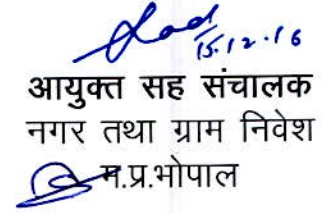 15.12.16
आयुक्त सह संचालक
नगर तथा ग्राम निवेश
म.प्र.भोपाल